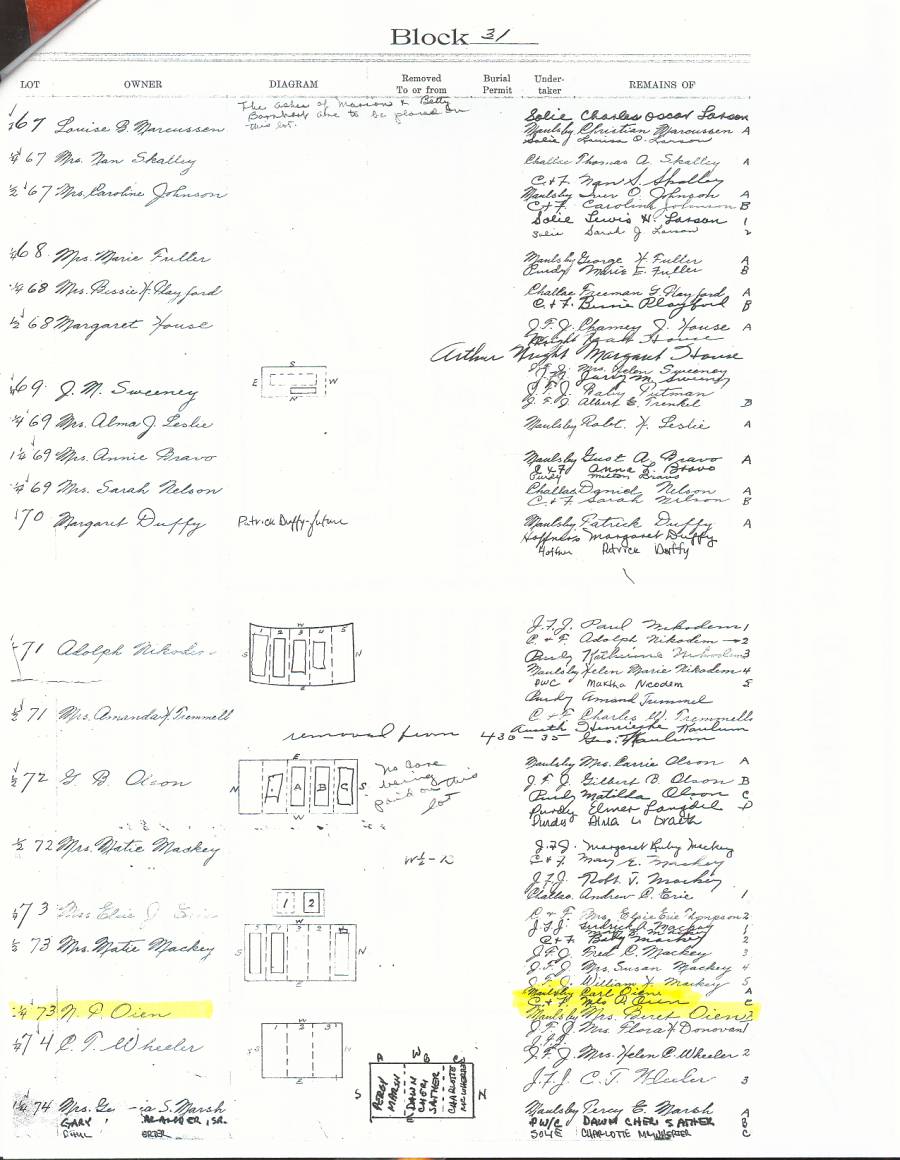 Block 31
LOT OWNER DIAGRAM Removed To or from Burial Permit Under-taker REMAINS OF
The ashes of Marion & Betty
are to be placed on
this lot.
67 Louise B. Marcussen Solie Charles Oscar Larson
Maulsby Christian Marcussen A
Solie Louisa O. Larson
¼ 67 Mrs. Nan Skalley Challac Thomas A. Skalley A
C. & F. Nan S. Skalley
½ 67 Mrs. Caroline Johnson Maulsby Iver O. Johnson A
C & F. Caroline Johnson B
Solie Lewis H. Larson 1
Solie Sarah J. Larson 2
¼ 68 Mrs. Marie Fuller Maulsby George H. Fuller A
Purdy Marie E. Fuller B
¼ 68 Mrs. Bessie H. Playford Challac Freeman G. Playford A
C. & F. Playford B
½ 68 Margaret House J.F.J. J. House A
House
Arthur Wright Margaret House
S
E W
N
69 J. M. Sweeney J.F.J. Mrs. Helen Sweeney
Sweeney
J.F.J. Baby Pitman
J.F.J. Albert E. Trenkel B
¼ 69 Mrs. Alma J. Leslie Maulsby Robt. H. Leslie A
¼ 69 Mrs. Annie Bravo Maulsby Gust A. Bravo A
C & F Anna L. Bravo
Purdy Milton Bravo
¼ 69 Mrs. Sarah Nelson Challac Daniel Nelson A
C. & F. Sarah Nelson B
70 Margaret Duffy Patrick Duffy-future Maulsby Patrick Duffy A
Hoffners Margaret Duffy
Hoffner Patrick Duffy
W
1 2 3 4 5
S N
E
71 Adolph J.F.J. Paul Nikodem 1
C. & F. Adolph Nikodem 2
Purdy Katherine Nikodem 3
Maulsby Helen Marie Nikodem 4
PWC Martha Nicodem 5
Purdy
½ 71 Mrs. Amanda H. Tremmells C & F Charles W. Tremmells
removed from 430-35 Geo.
½ 72 G. B. Olson Maulsby Mrs. Carrie Olson A
E
N A B C S
W
no care being paid on this lot
J.F.J. Gilbert B. Olson B
Purdy Matilda Olson C
Purdy Elmer Langdil D
Purdy Alma
½ 72 Mrs. Matie Mackey W½-12 J.F.J. Margaret Ruby Mackey
C. & F. Mary E. Mackey
J.F.J. Robt. V. Mackey
Challac Andrew C. Erie 1
1 2
73 Mrs Elsie J. C. & F. Mrs. Elsie Erie Thompson 2
J.F.J. Mackey 1
W
S 5 1 3 2 N
½ 73 Mrs. Matie Mackey C & F. Baby Mackey 2
J.F.J. Fred C. Mackey 3
J.F.J. Mrs. Susan Mackey 4
J.F.J. William H. Mackey 5
Maulsby Carl Oien A
C. & F. Oien C
¼ 73 N. P. Oien Maulsby Mrs. Beret Oien
J.F.J. Mrs. Flora H. Donovan 1
W
1 2 3
S N
E
74 C. T. Wheeler J.F.J. Mrs. Helen C. Wheeler 2
J.F.J. C. T. Wheeler 3
A W B C
S PERCY MARSH DAWN CHERI SATHER CHARLOTTE MCWHERTER N
E
¼ 74 Mrs. S. Marsh Maulsby Percy E. Marsh A
GARY SR. PW/C DAWN CHERI SATHER B
SOLIE CHARLOTTE MCWHERTER C